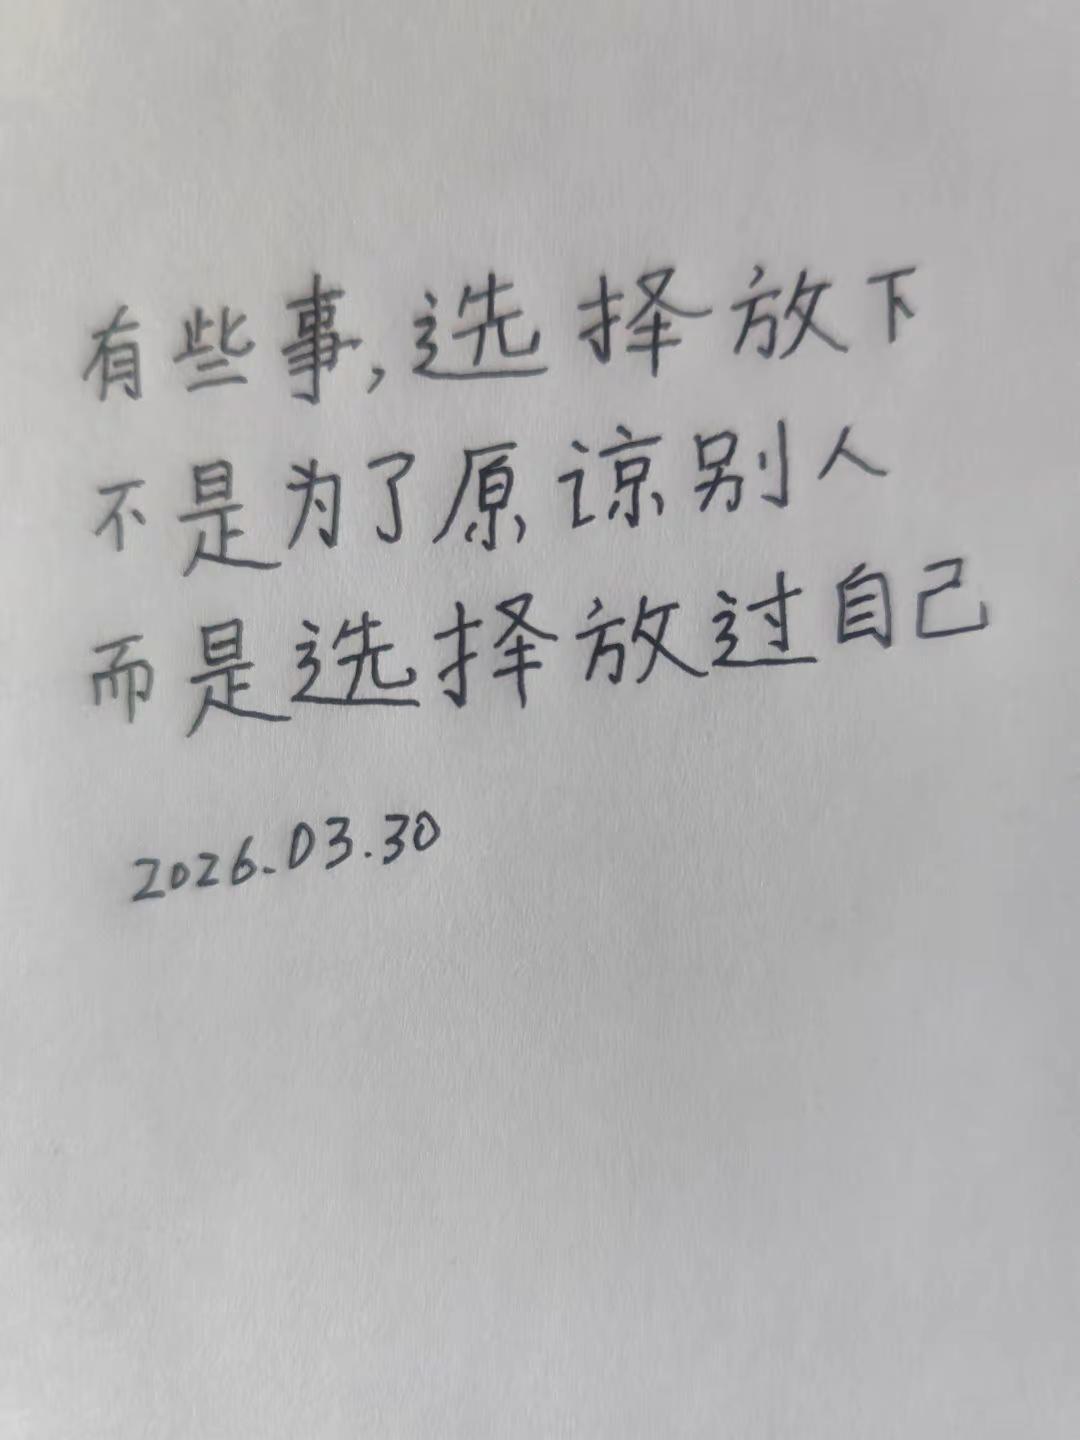 有些事,选择放下
不是为了原谅别人
而是选择放过自己
2026.03.30